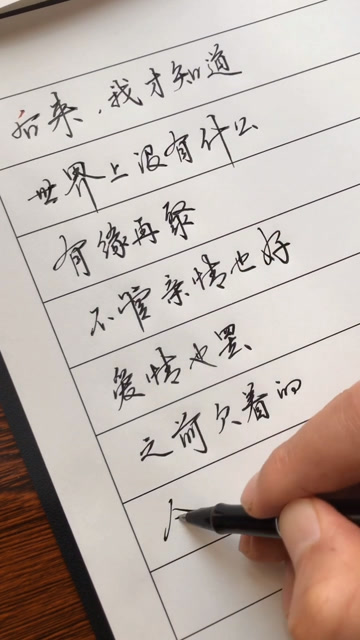 后来，我才知道
世界上没有什么
有缘再聚
不管亲情也好
爱情也罢
之前欠着的